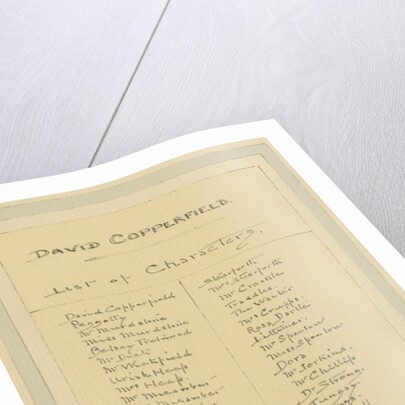 DAVID COPPERFIELD.
List of Characters.
David Copperfield
Peggotty
Mr Murdstone
Miss Murdstone
Betsey Trotwood
Mr Dick
Mr Wickfield
Uriah Heep
Mrs Heep
Mr Micawber
Steerforth
Mrs Steerforth
Mr Creakle
Traddles
The Waiter
Mrs Crupp
Rosa Dartle
Littimer
Mr Spenlow
Miss Spenlow
Dora
Mr Jorkins
Mr Chillip
Dr Strong